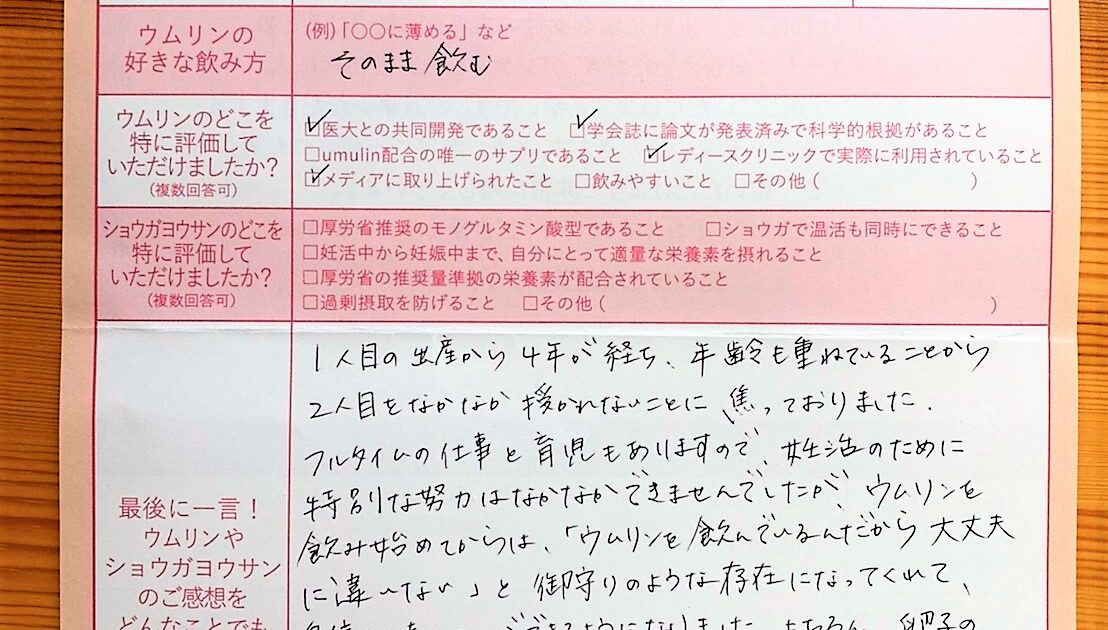 ウムリンの
好きな飲み方
(例)「〇〇に薄める」など
そのまま飲む
ウムリンのどこを
特に評価して
いただけましたか?
(複数回答可)
☑医大との共同開発であること ☑学会誌に論文が発表済みで科学的根拠があること
□umulin配合の唯一のサプリであること ☑レディースクリニックで実際に利用されていること
☑メディアに取り上げられたこと □飲みやすいこと □その他( )
ショウガヨウサンのどこを
特に評価して
いただけましたか?
(複数回答可)
□厚労省推奨のモノグルタミン酸型であること □ショウガで温活も同時にできること
□妊活中から妊娠中まで、自分にとって適量な栄養素を摂れること
□厚労省の推奨量準拠の栄養素が配合されていること
□過剰摂取を防げること □その他( )
最後に一言!
ウムリンや
ショウガヨウサン
のご感想を
どんなことでも
1人目の出産から4年が経ち、年齢も重ねていることから
2人目をなかなか授かれないことに、焦っておりました.
フルタイムの仕事と育児もありますので、妊活のために
特別な努力はなかなかできませんでしたが、ウムリンを
飲み始めてからは、「ウムリンを飲んでいるんだから大丈夫
に違いない」と御守りのような存在になってくれて、
できるようになりました。もちろん、卵子の